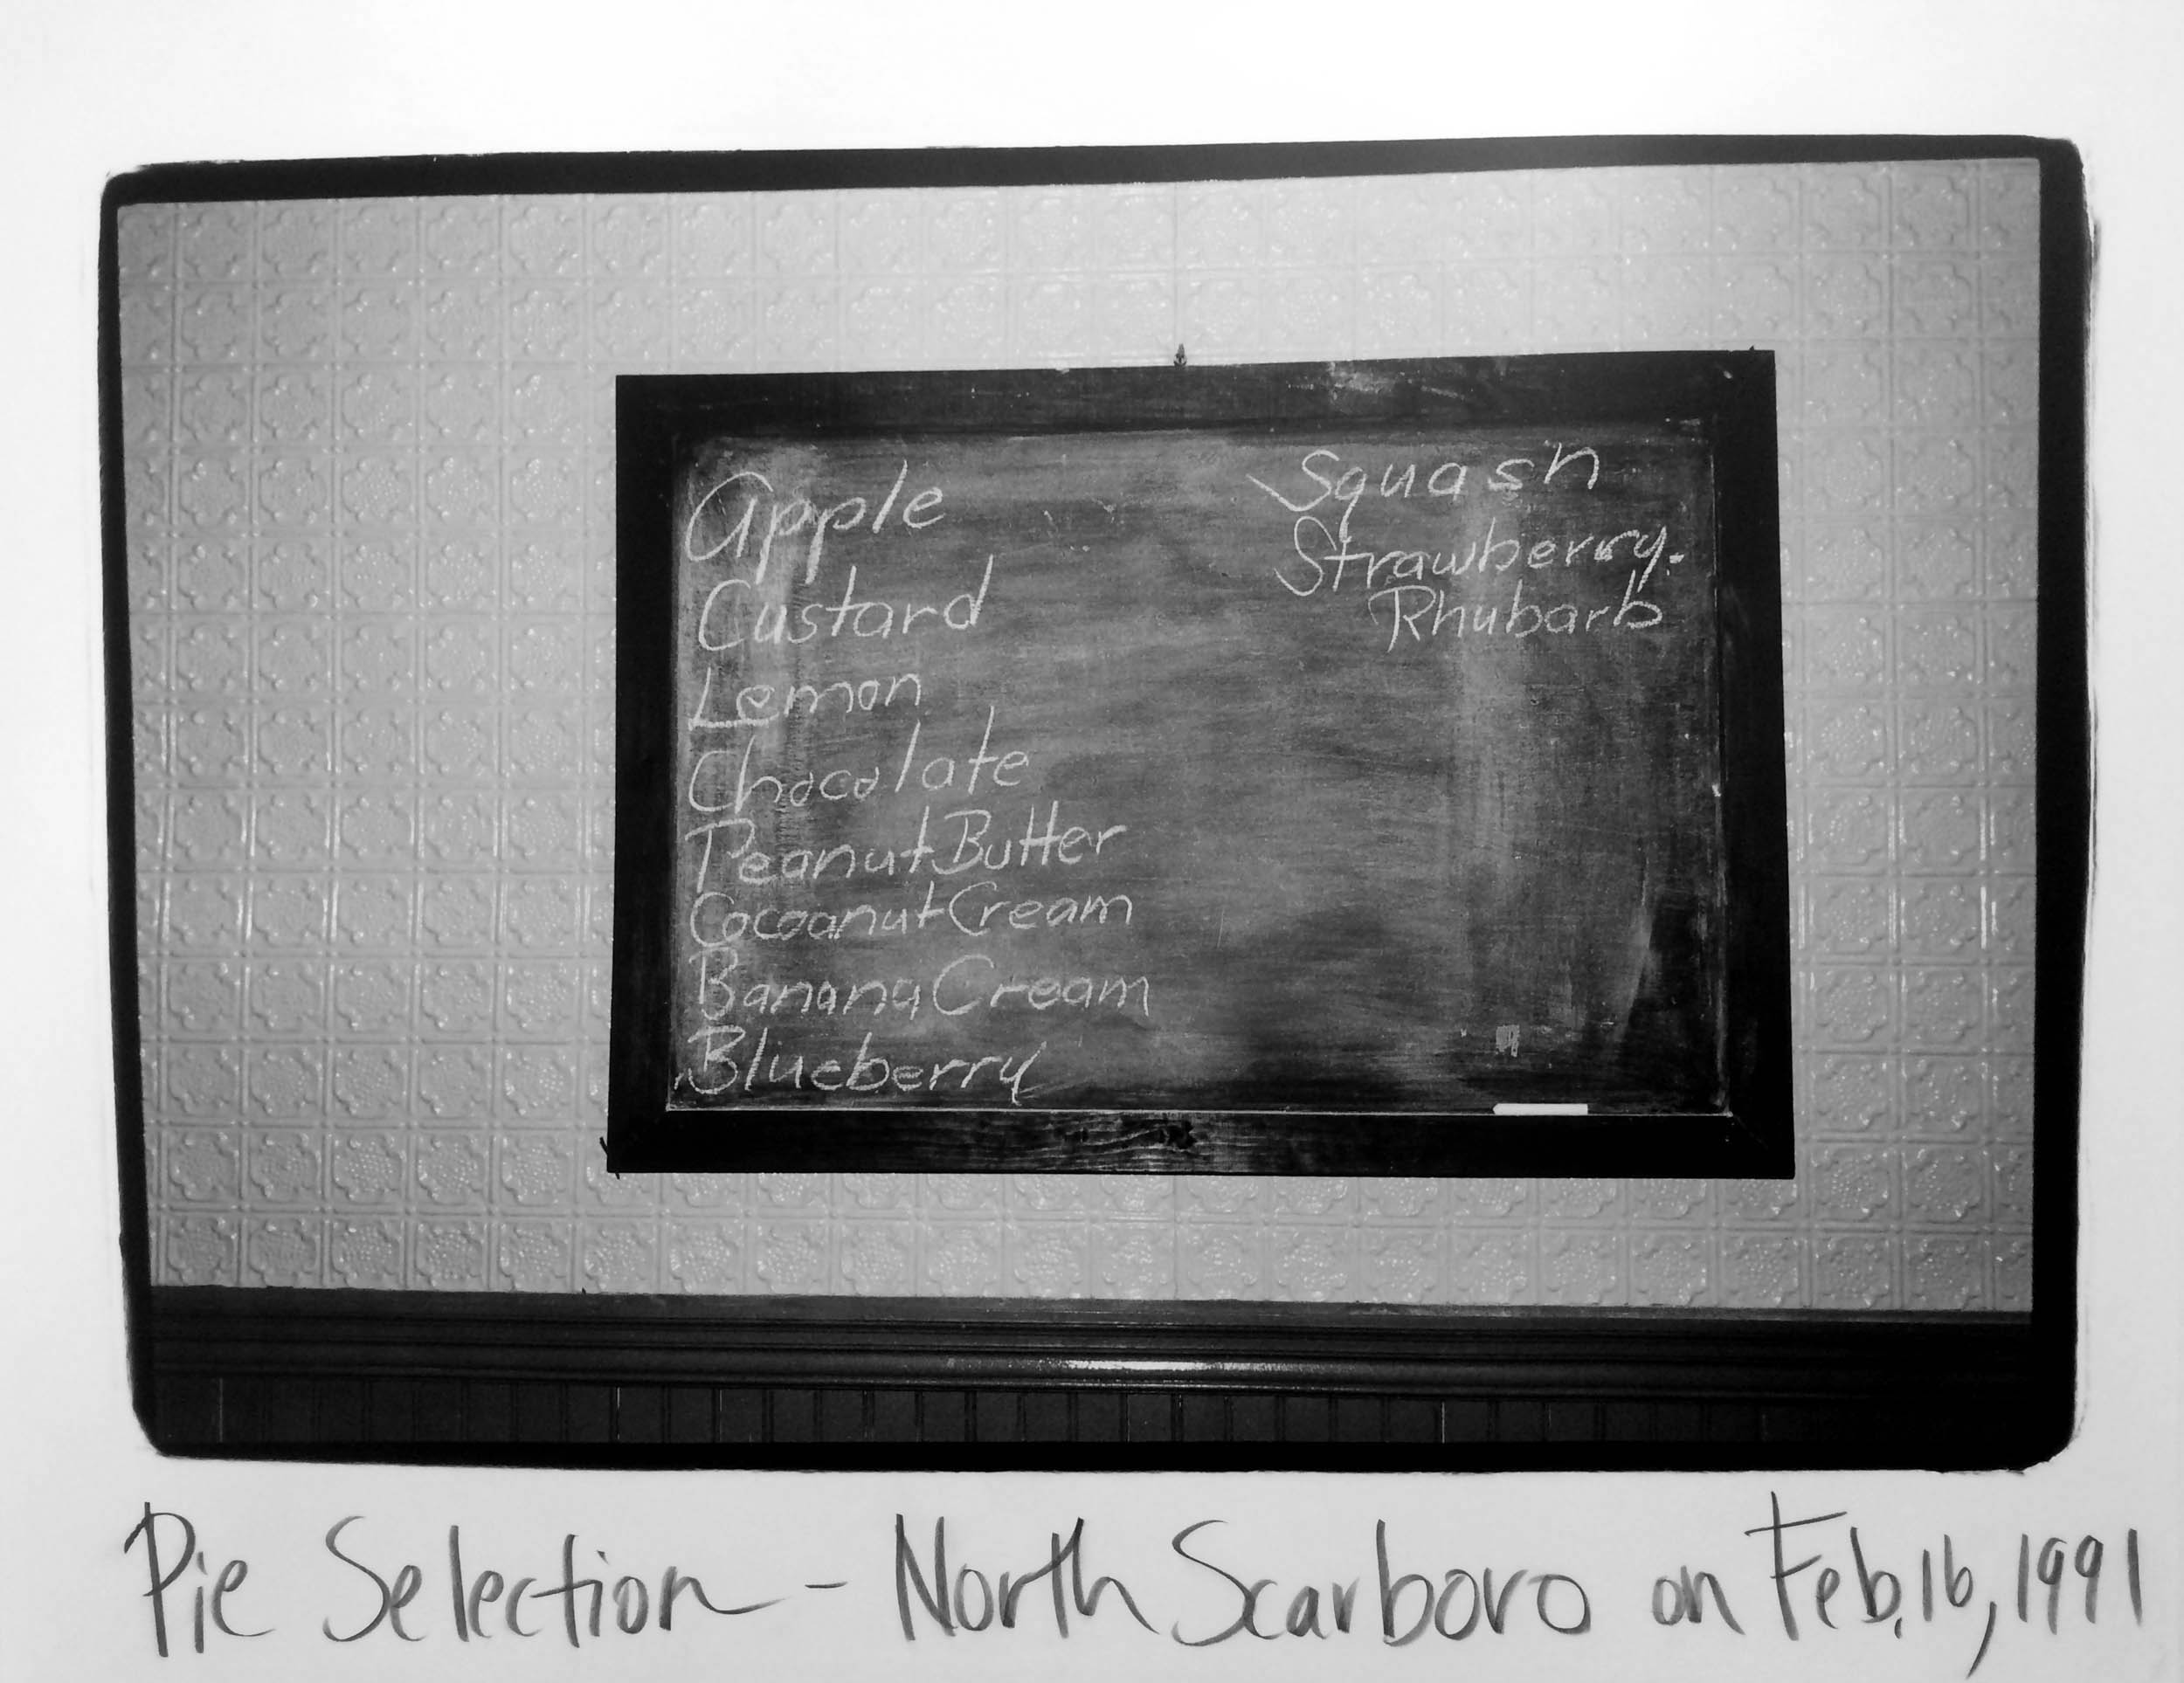 Apple
Custard
Lemon
Chocolate
Peanut Butter
Cocoanut Cream
Banana Cream
Blueberry
Squash
Strawberry-
Rhubarb
Pie Selection - North Scarboro on Feb. 16, 1991